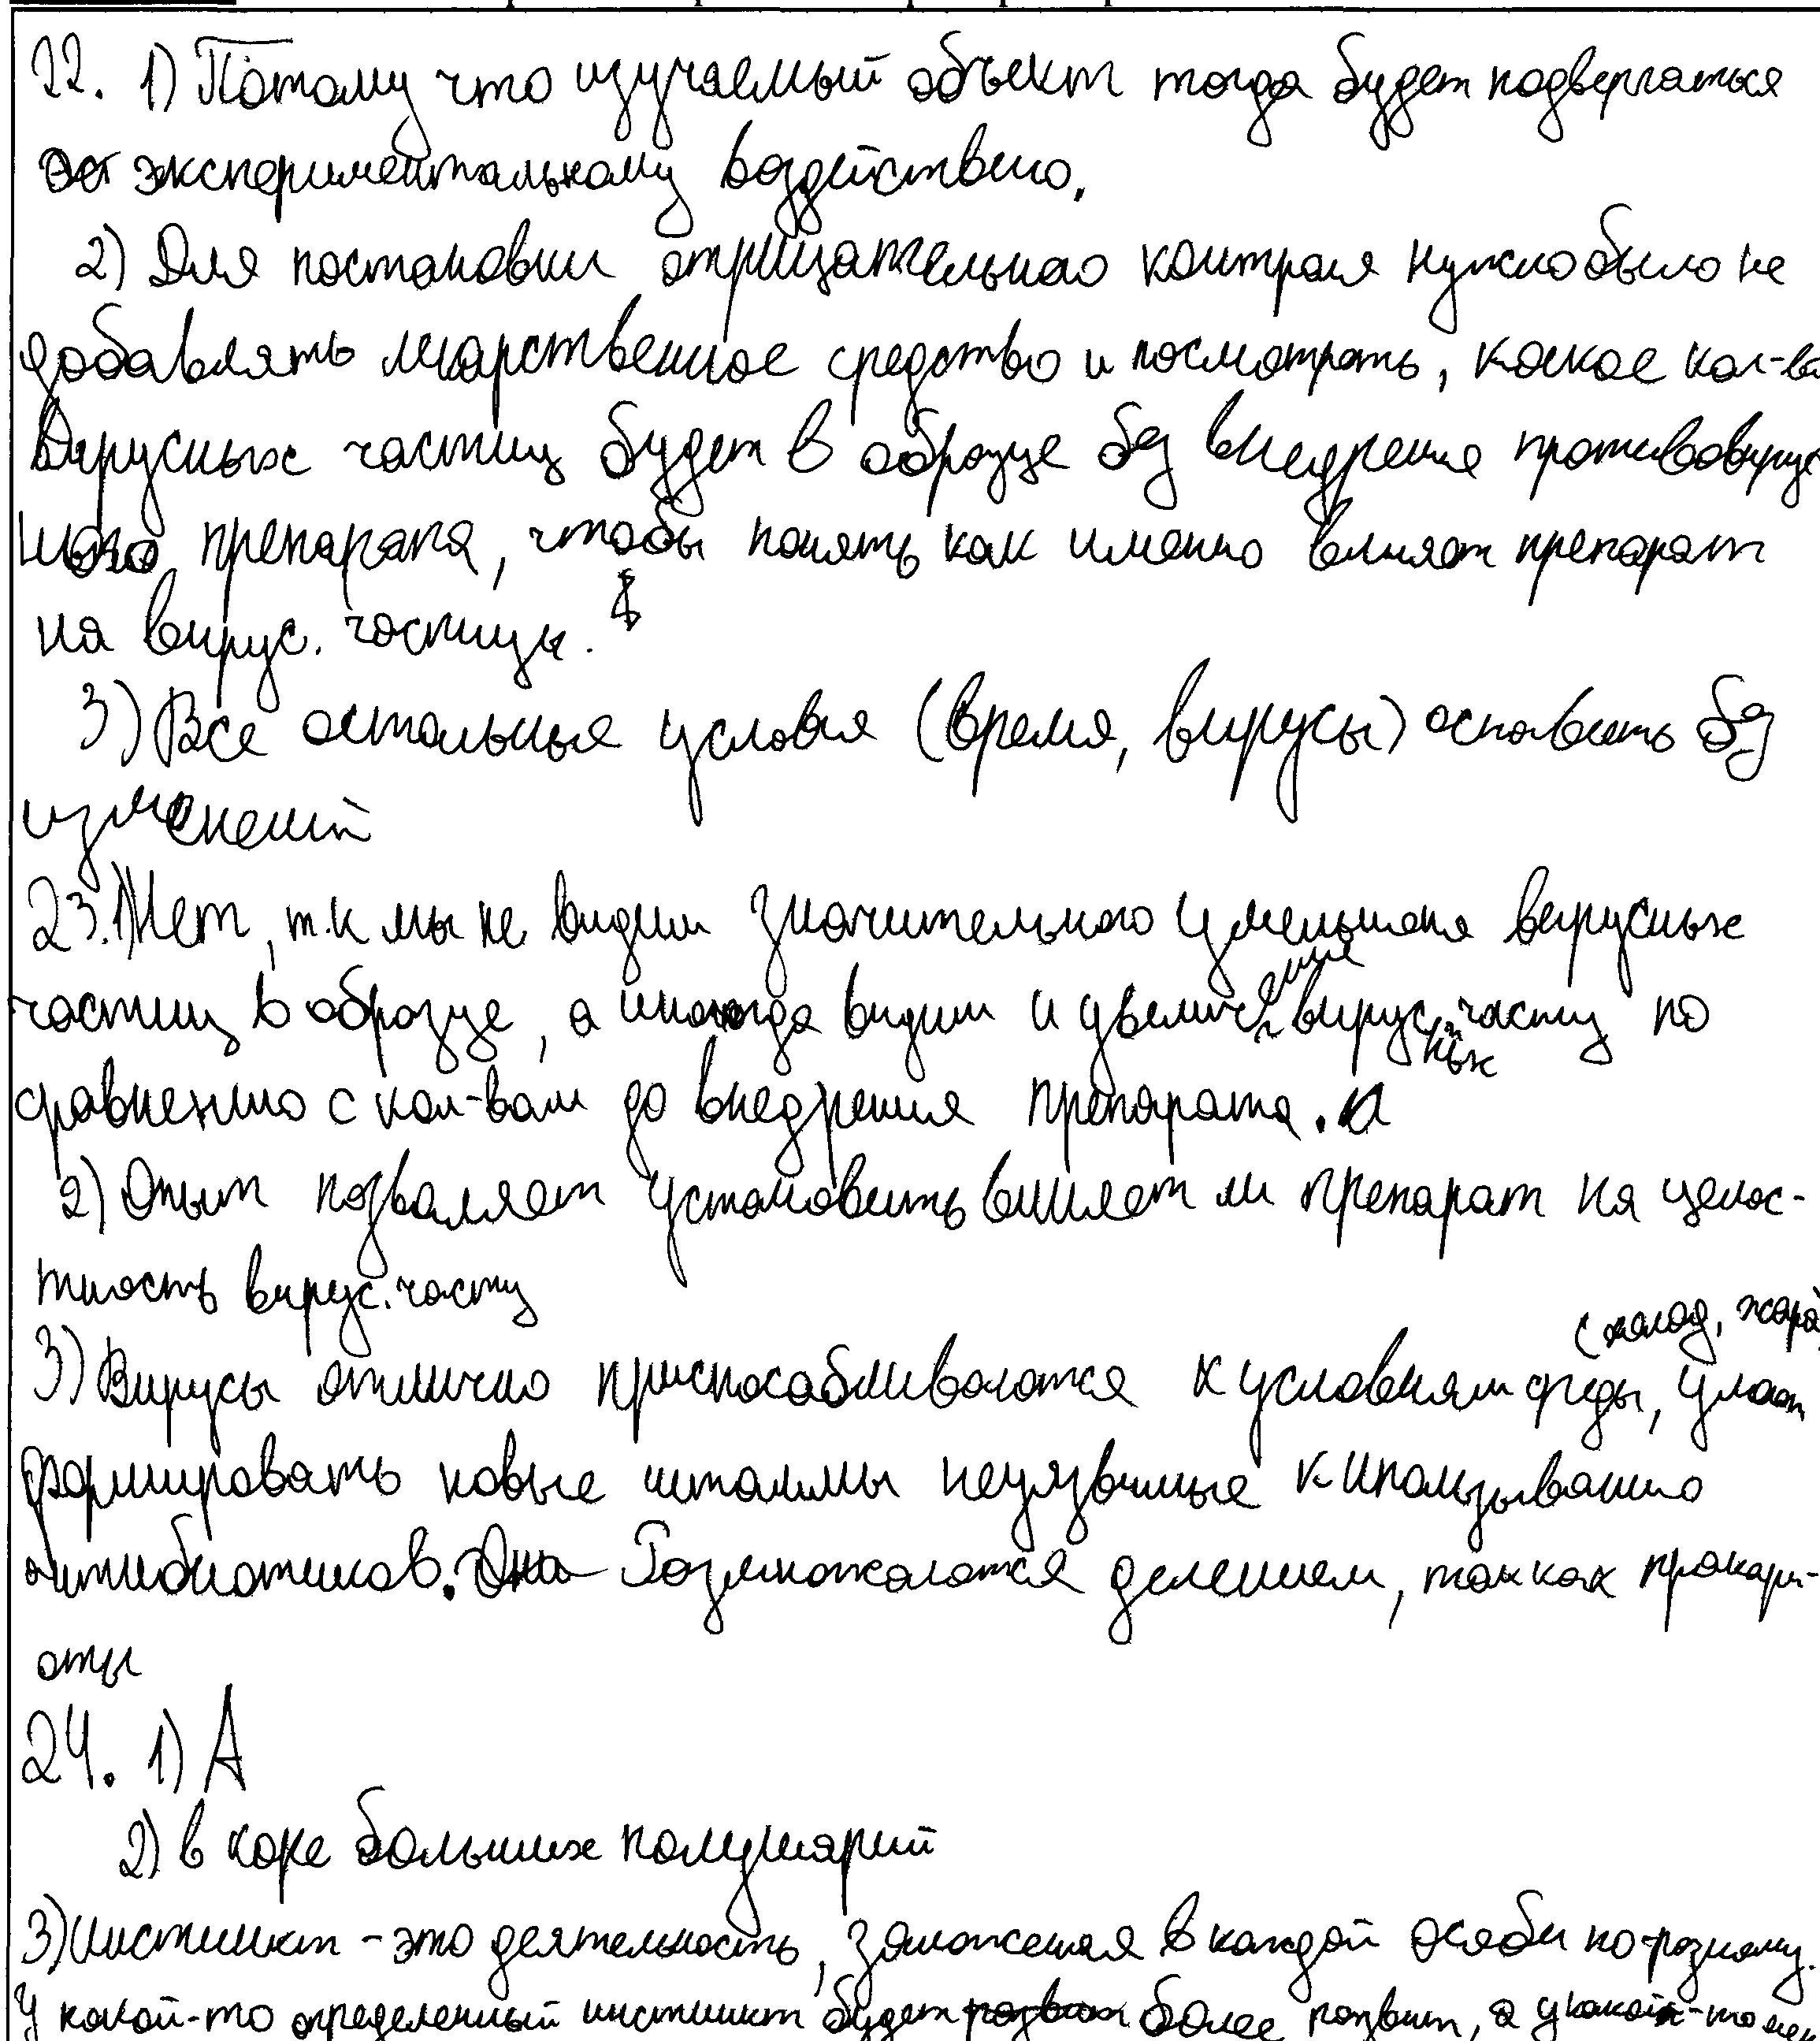 22. 1) Потому что изучаемый объект тогда будет подвергаться
экспериментальному воздействию.
2) Для постановки отрицательного контроля нужно было не
добавлять лекарственное средство и посмотреть, какое кол-во
вирусных частиц будет в образце без внедрения противовирус
ного препарата, чтобы понять как именно влияет препарат
на вирус. частицы.
3) Все остальные условия (время, вирусы) оставить без
изменений
23. 1) Нет, т.к мы не видим значительного уменьшения вирусных
частиц в образце, а иногда видим и увеличение вирусных частиц по
сравнению с кол-вом до внедрения препарата.
2) Опыт позволяет установить влияет ли препарат на целос-
тность вирус. частиц
3) Вирусы отлично приспосабливаются к условиям среды (холод, жара), умеют
формировать новые штаммы неуязвимые к ипользыванию
антибиотиков. Размножаются делением, так как прокари-
оты
24. 1) А
2) в коре больших полушарий
3) Инстинкт - это деятельность, заложенная в каждой особи по-разному.
У какой-то определенный инстинкт будет более развит, а у какой-то